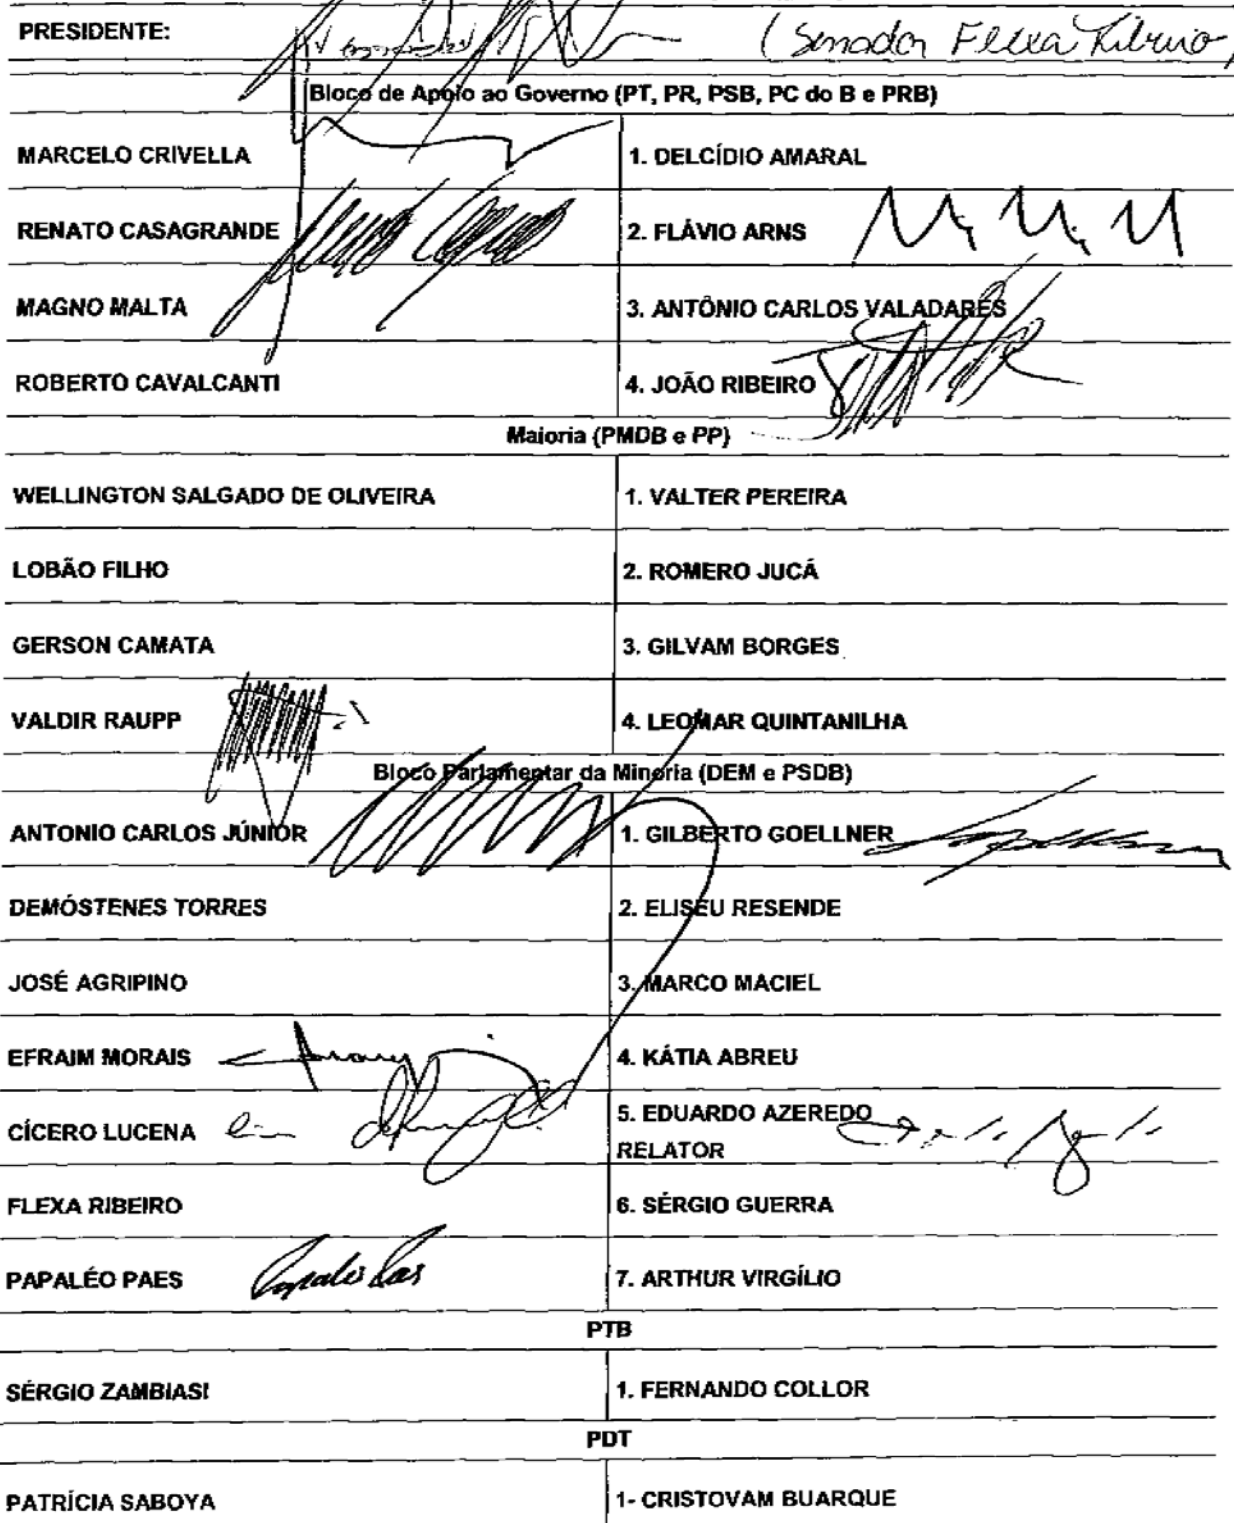 PRESIDENTE: (Senador Flexa Ribeiro)
Bloco de Apoio ao Governo (PT, PR, PSB, PC do B e PRB)
MARCELO CRIVELLA 1. DELCÍDIO AMARAL
RENATO CASAGRANDE 2. FLÁVIO ARNS
MAGNO MALTA 3. ANTÔNIO CARLOS VALADARES
ROBERTO CAVALCANTI 4. JOÃO RIBEIRO
Maioria (PMDB e PP)
WELLINGTON SALGADO DE OLIVEIRA 1. VALTER PEREIRA
LOBÃO FILHO 2. ROMERO JUCÁ
GERSON CAMATA 3. GILVAM BORGES
VALDIR RAUPP 4. LEOMAR QUINTANILHA
Bloco Parlamentar da Minoria (DEM e PSDB)
ANTONIO CARLOS JÚNIOR 1. GILBERTO GOELLNER
DEMÓSTENES TORRES 2. ELISEU RESENDE
JOSÉ AGRIPINO 3. MARCO MACIEL
EFRAIM MORAIS 4. KÁTIA ABREU
CÍCERO LUCENA 5. EDUARDO AZEREDO
RELATOR
FLEXA RIBEIRO 6. SÉRGIO GUERRA
PAPALÉO PAES Papaléo Paes 7. ARTHUR VIRGÍLIO
PTB
SÉRGIO ZAMBIASI 1. FERNANDO COLLOR
PDT
PATRÍCIA SABOYA 1- CRISTOVAM BUARQUE